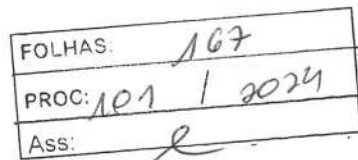 FOLHAS: 167
PROC: 101 / 2024
Ass: